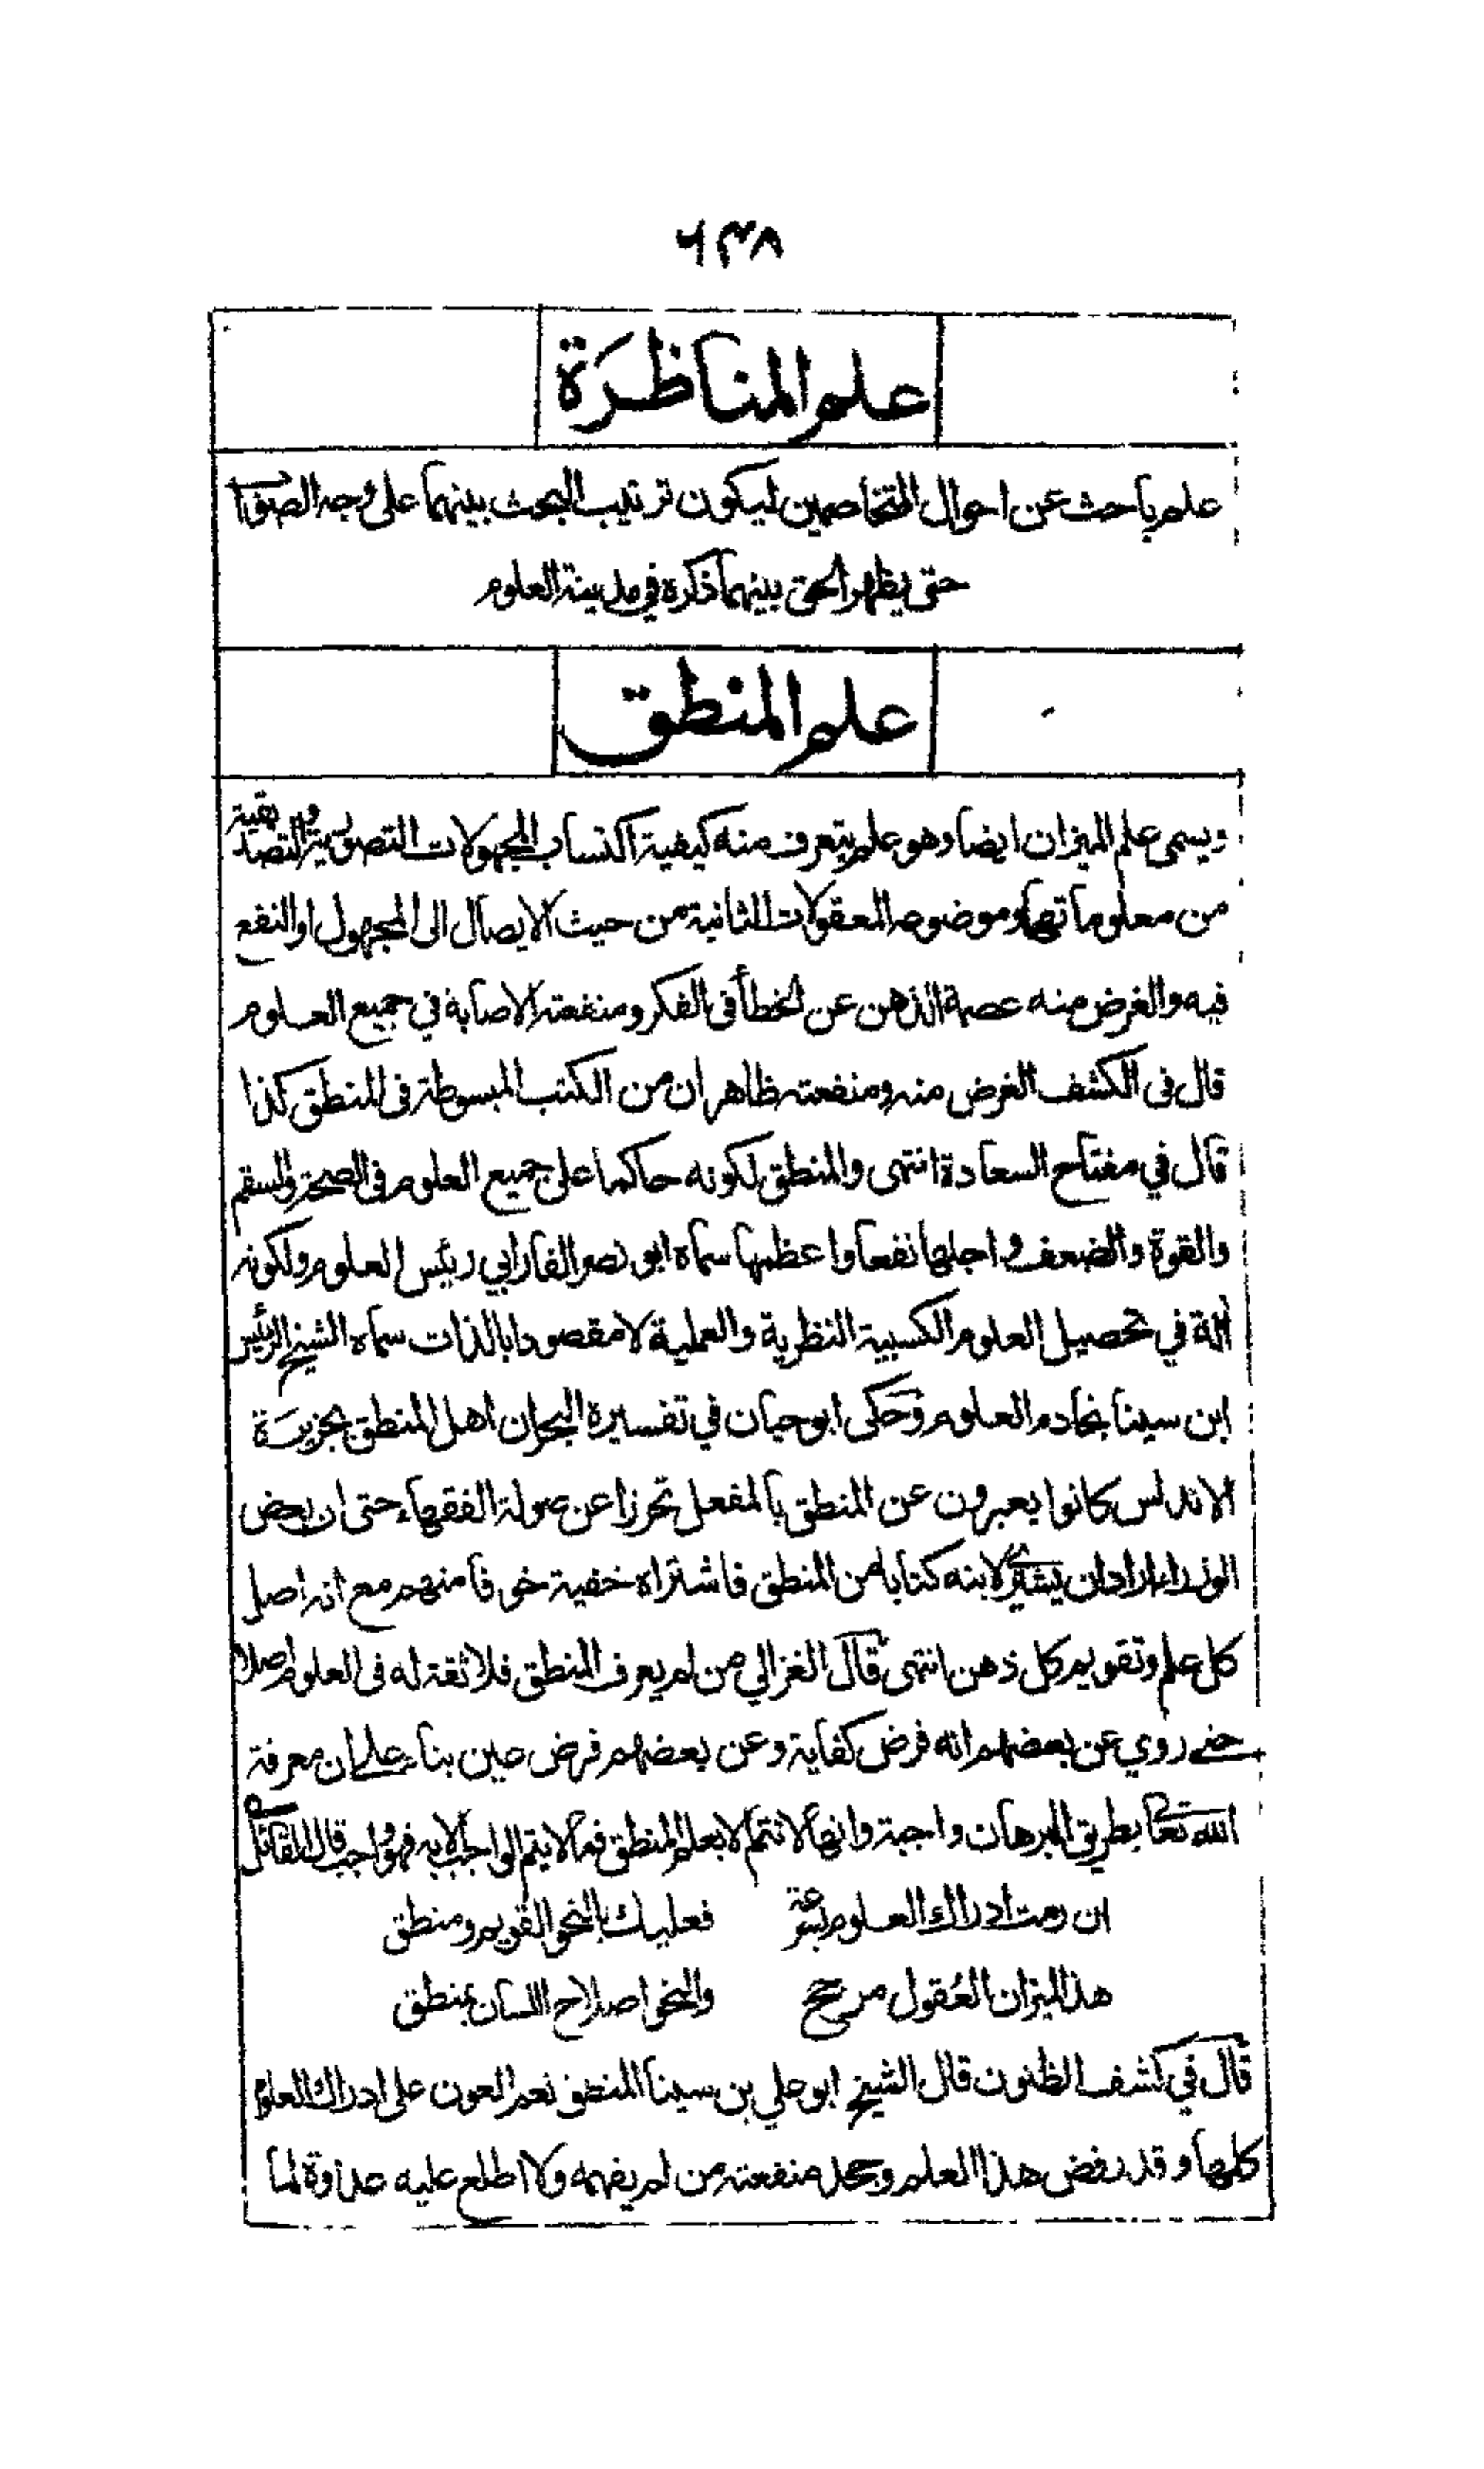 ٦٣٨
علم المناظرة
علم باحث عن احوال المتخاصمين ليكون ترتيب البحث بينهما على وجه الصواب
حتى يظهر الحق بينهما ذكره في مدينة العلوم
علم المنطق
ويسمى علم الميزان ايضا وهو علم يتعرف منه كيفية اكتساب المجهولات التصورية والتصديقية
من معلوماتها وموضوعه المعقولات الثانية من حيث الايصال الى المجهول او النفع
فيه والغرض منه عصمة الذهن عن الخطأ في الفكر ومنفعته الاصابة في جميع العلوم
قال في الكشف الغرض منه ومنفعته ظاهران من الكتب المبسوطة في المنطق كذا
قال في مفتاح السعادة انتهى والمنطق لكونه حاكما على جميع العلوم في الصحة والسقم
والقوة والضعف واجلها نفعا واعظمها سماه ابو نصر الفارابي رئيس العلوم ولكونه
آلة في تحصيل العلوم الكسبية النظرية والعملية لا مقصودا بالذات سماه الشيخ الرئيس
ابن سينا بخادم العلوم وحكى ابو حيان في تفسيره البحر ان اهل المنطق بجزيرة
الاندلس كانوا يعبرون عن المنطق بالمفعل تحرزا عن صولة الفقهاء حتى ان بعض
الوزراء اراد ان يشتري لابنه كتابا من المنطق فاشتراه خفية خوفا منهم مع انه اصل
كل علم وتقويم كل ذهن انتهى قال الغزالي من لم يعرف المنطق فلا ثقة له في العلوم اصلا
حتى روي عن بعضهم انه فرض كفاية وعن بعضهم فرض عين بناء على ان معرفة
الله تعالى بطريق البرهان واجبة وانها لا تتم الا بعلم المنطق فما لا يتم الواجب الا به فهو واجب قال القائل
ان رمت ادراك العلوم بسرعة فعليك بالنحو القويم ومنطق
هذا الميزان العُقول مرجح والنحو اصلاح اللسان بمنطق
قال في كشف الظنون قال الشيخ ابو علي بن سينا المنطق نعم العون على ادراك العلوم
كلها وقد رفض هذا العلم وجحد منفعته من لم يفهمه ولا اطلع عليه عداوة لما